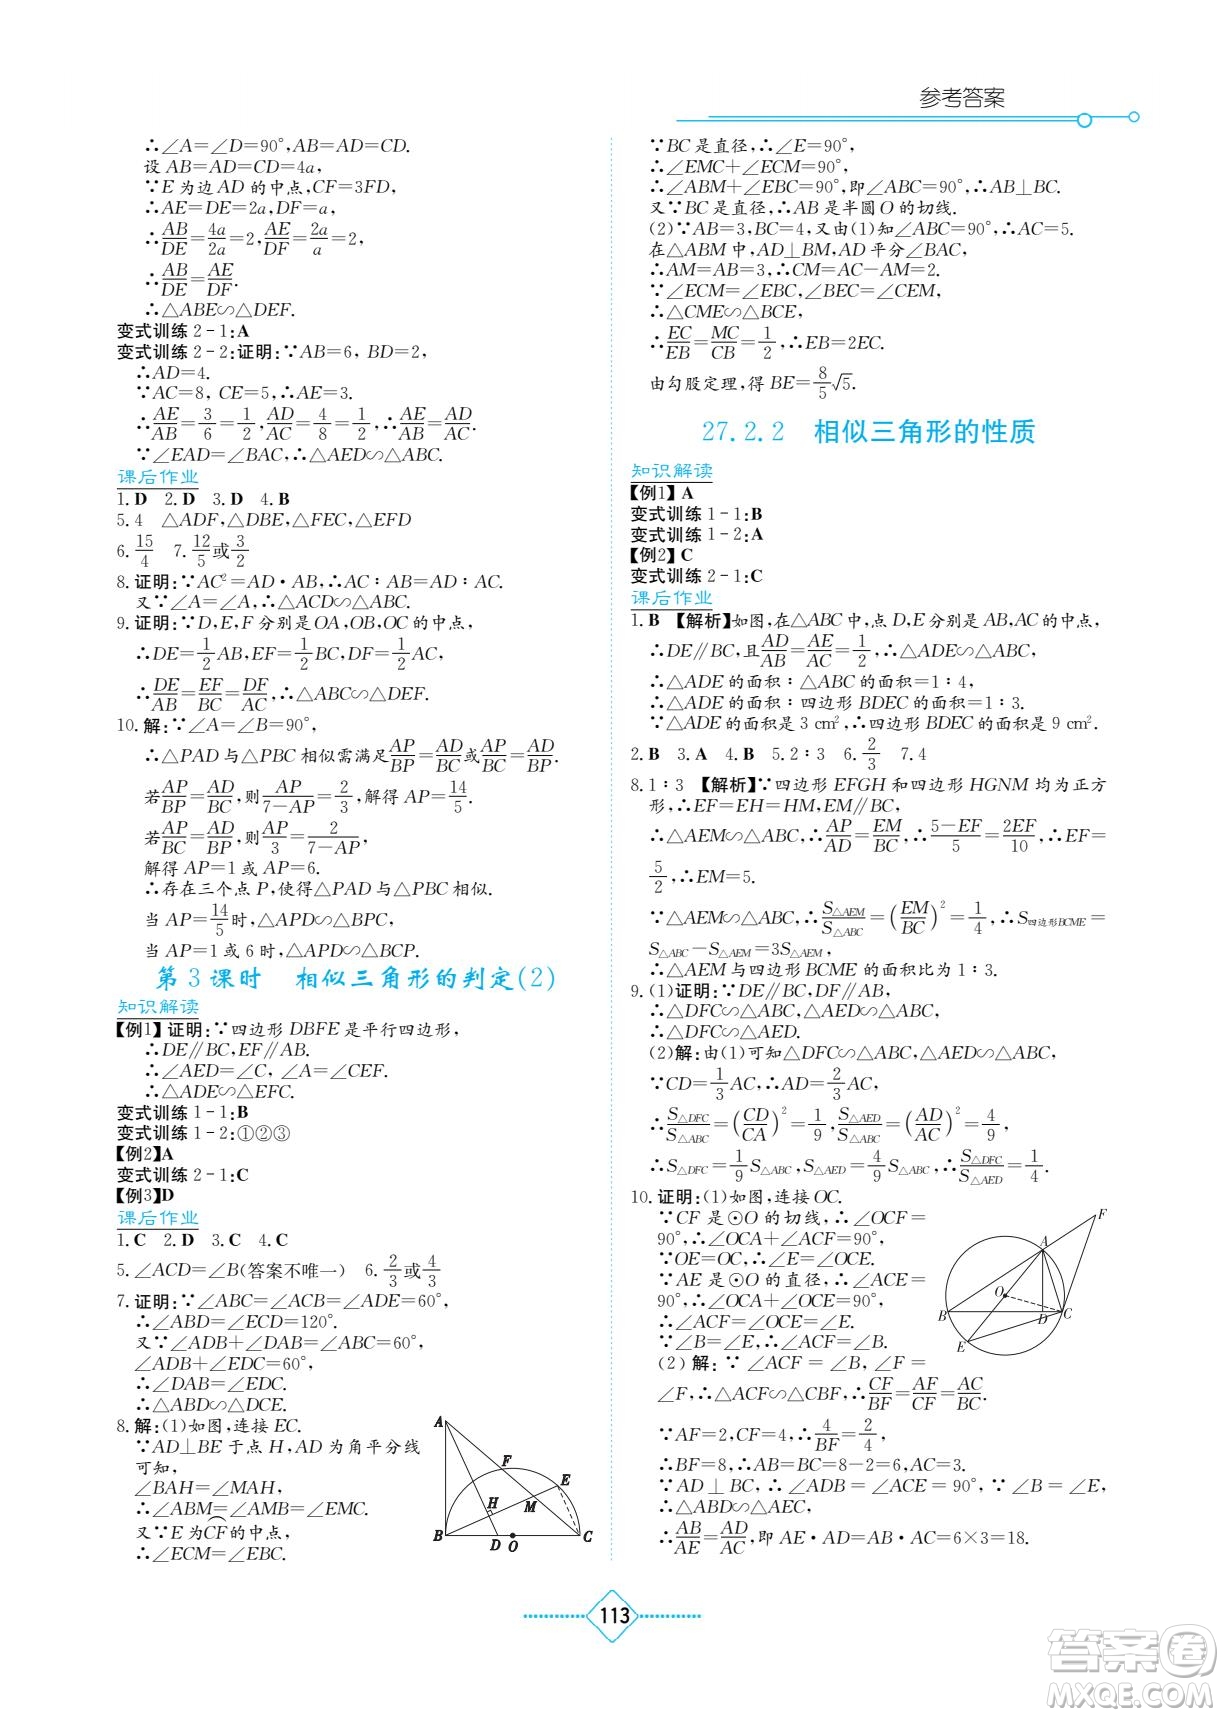 参考答案
∴∠A=∠D=90°,AB=AD=CD.
设 AB=AD=CD=4a,
∵E 为边 AD 的中点,CF=3FD,
∴AE=DE=2a,DF=a,
∴AB/DE=4a/2a=2,AE/DF=2a/a=2,
∴AB/DE=AE/DF.
∴△ABE∽△DEF.
变式训练 2-1:A
变式训练 2-2:证明:∵AB=6, BD=2,
∴AD=4.
∵AC=8, CE=5,∴AE=3.
∴AE/AB=3/6=1/2,AD/AC=4/8=1/2,∴AE/AB=AD/AC.
∵∠EAD=∠BAC,∴△AED∽△ABC.
课后作业
1. D 2. D 3. D 4. B
5. 4 △ADF,△DBE,△FEC,△EFD
6. 15/4 7. 12/5或3/2
8. 证明:∵AC²=AD·AB,∴AC∶AB=AD∶AC.
又∵∠A=∠A,∴△ACD∽△ABC.
9. 证明:∵D,E,F 分别是OA,OB,OC的中点,
∴DE=1/2AB,EF=1/2BC,DF=1/2AC,
∴DE/AB=EF/BC=DF/AC,∴△ABC∽△DEF.
10. 解:∵∠A=∠B=90°,
∴△PAD 与△PBC 相似需满足AP/BP=AD/BC或AP/BC=AD/BP.
若AP/BP=AD/BC,则AP/(7-AP)=2/3,解得 AP=14/5.
若AP/BC=AD/BP,则AP/3=2/(7-AP),
解得 AP=1 或 AP=6.
∴存在三个点 P,使得△PAD 与△PBC 相似.
当 AP=14/5时,△APD∽△BPC,
当 AP=1 或 6 时,△APD∽△BCP.
第 3 课时 相似三角形的判定(2)
知识解读
【例1】证明:∵四边形 DBFE 是平行四边形,
∴DE∥BC,EF∥AB.
∴∠AED=∠C, ∠A=∠CEF.
∴△ADE∽△EFC.
变式训练 1-1:B
变式训练 1-2:①②③
【例2】A
变式训练 2-1:C
【例3】D
课后作业
1. C 2. D 3. C 4. C
5. ∠ACD=∠B(答案不唯一) 6. 2/3或4/3
7. 证明:∵∠ABC=∠ACB=∠ADE=60°,
∴∠ABD=∠ECD=120°.
又∵∠ADB+∠DAB=∠ABC=60°,
∠ADB+∠EDC=60°,
∴∠DAB=∠EDC.
∴△ABD∽△DCE.
8. 解:(1)如图,连接 EC.
∵AD⊥BE 于点 H,AD 为角平分线
可知,
∠BAH=∠MAH,
∴∠ABM=∠AMB=∠EMC.
又∵E 为CF的中点,
∴∠ECM=∠EBC.
A
F
E
H
M
B
D
O
C
∵BC 是直径,∴∠E=90°,
∴∠EMC+∠ECM=90°,
∴∠ABM+∠EBC=90°,即∠ABC=90°,∴AB⊥BC.
又∵BC 是直径,∴AB 是半圆 O 的切线.
(2)∵AB=3,BC=4,又由(1)知∠ABC=90°,∴AC=5.
在△ABM 中,AD⊥BM,AD 平分∠BAC,
∴AM=AB=3,∴CM=AC-AM=2.
∵∠ECM=∠EBC,∠BEC=∠CEM,
∴△CME∽△BCE,
∴EC/EB=MC/CB=1/2,∴EB=2EC.
由勾股定理,得 BE=8/5√5.
27.2.2 相似三角形的性质
知识解读
【例1】A
变式训练 1-1:B
变式训练 1-2:A
【例2】C
变式训练 2-1:C
课后作业
1. B 【解析】如图,在△ABC 中,点 D,E 分别是 AB,AC 的中点,
∴DE∥BC,且AD/AB=AE/AC=1/2,∴△ADE∽△ABC,
∴△ADE 的面积∶△ABC 的面积=1∶4,
∴△ADE 的面积∶四边形 BDEC 的面积=1∶3.
∵△ADE 的面积是 3 cm²,∴四边形 BDEC 的面积是 9 cm².
2. B 3. A 4. B 5. 2∶3 6. 2/3 7. 4
8. 1∶3 【解析】∵四边形 EFGH 和四边形 HGNM 均为正方
形,∴EF=EH=HM,EM∥BC,
∴△AEM∽△ABC,∴AP/AD=EM/BC,∴(5-EF)/5=2EF/10,∴EF=
5/2,∴EM=5.
∵△AEM∽△ABC,∴S△AEM/S△ABC=(EM/BC)²=1/4,∴S四边形BCME=
S△ABC-S△AEM=3S△AEM,
∴△AEM 与四边形 BCME 的面积比为 1∶3.
9. (1)证明:∵DE∥BC,DF∥AB,
∴△DFC∽△ABC,△AED∽△ABC,
∴△DFC∽△AED.
(2)解:由(1)可知△DFC∽△ABC,△AED∽△ABC,
∵CD=1/3AC,∴AD=2/3AC,
∴S△DFC/S△ABC=(CD/CA)²=1/9,S△AED/S△ABC=(AD/AC)²=4/9,
∴S△DFC=1/9S△ABC,S△AED=4/9S△ABC,∴S△DFC/S△AED=1/4.
10. 证明:(1)如图,连接 OC.
∵CF 是⊙O 的切线,∴∠OCF=
90°,∴∠OCA+∠ACF=90°.
∵OE=OC,∴∠E=∠OCE.
∵AE 是⊙O 的直径,∴∠ACE=
90°,∴∠OCA+∠OCE=90°,
∴∠ACF=∠OCE=∠E.
∵∠B=∠E,∴∠ACF=∠B.
(2) 解: ∵ ∠ACF = ∠B, ∠F =
∠F,∴△ACF∽△CBF,∴CF/BF=AF/CF=AC/BC.
∵AF=2,CF=4,∴4/BF=2/4,
∴BF=8,∴AB=BC=8-2=6,AC=3.
∵AD⊥BC,∴∠ADB=∠ACE=90°,∵∠B=∠E,
∴△ABD∽△AEC,
∴AB/AE=AD/AC,即 AE·AD=AB·AC=6×3=18.
F
A
O
B
D
C
E
113
答案圈
MXQE.COM